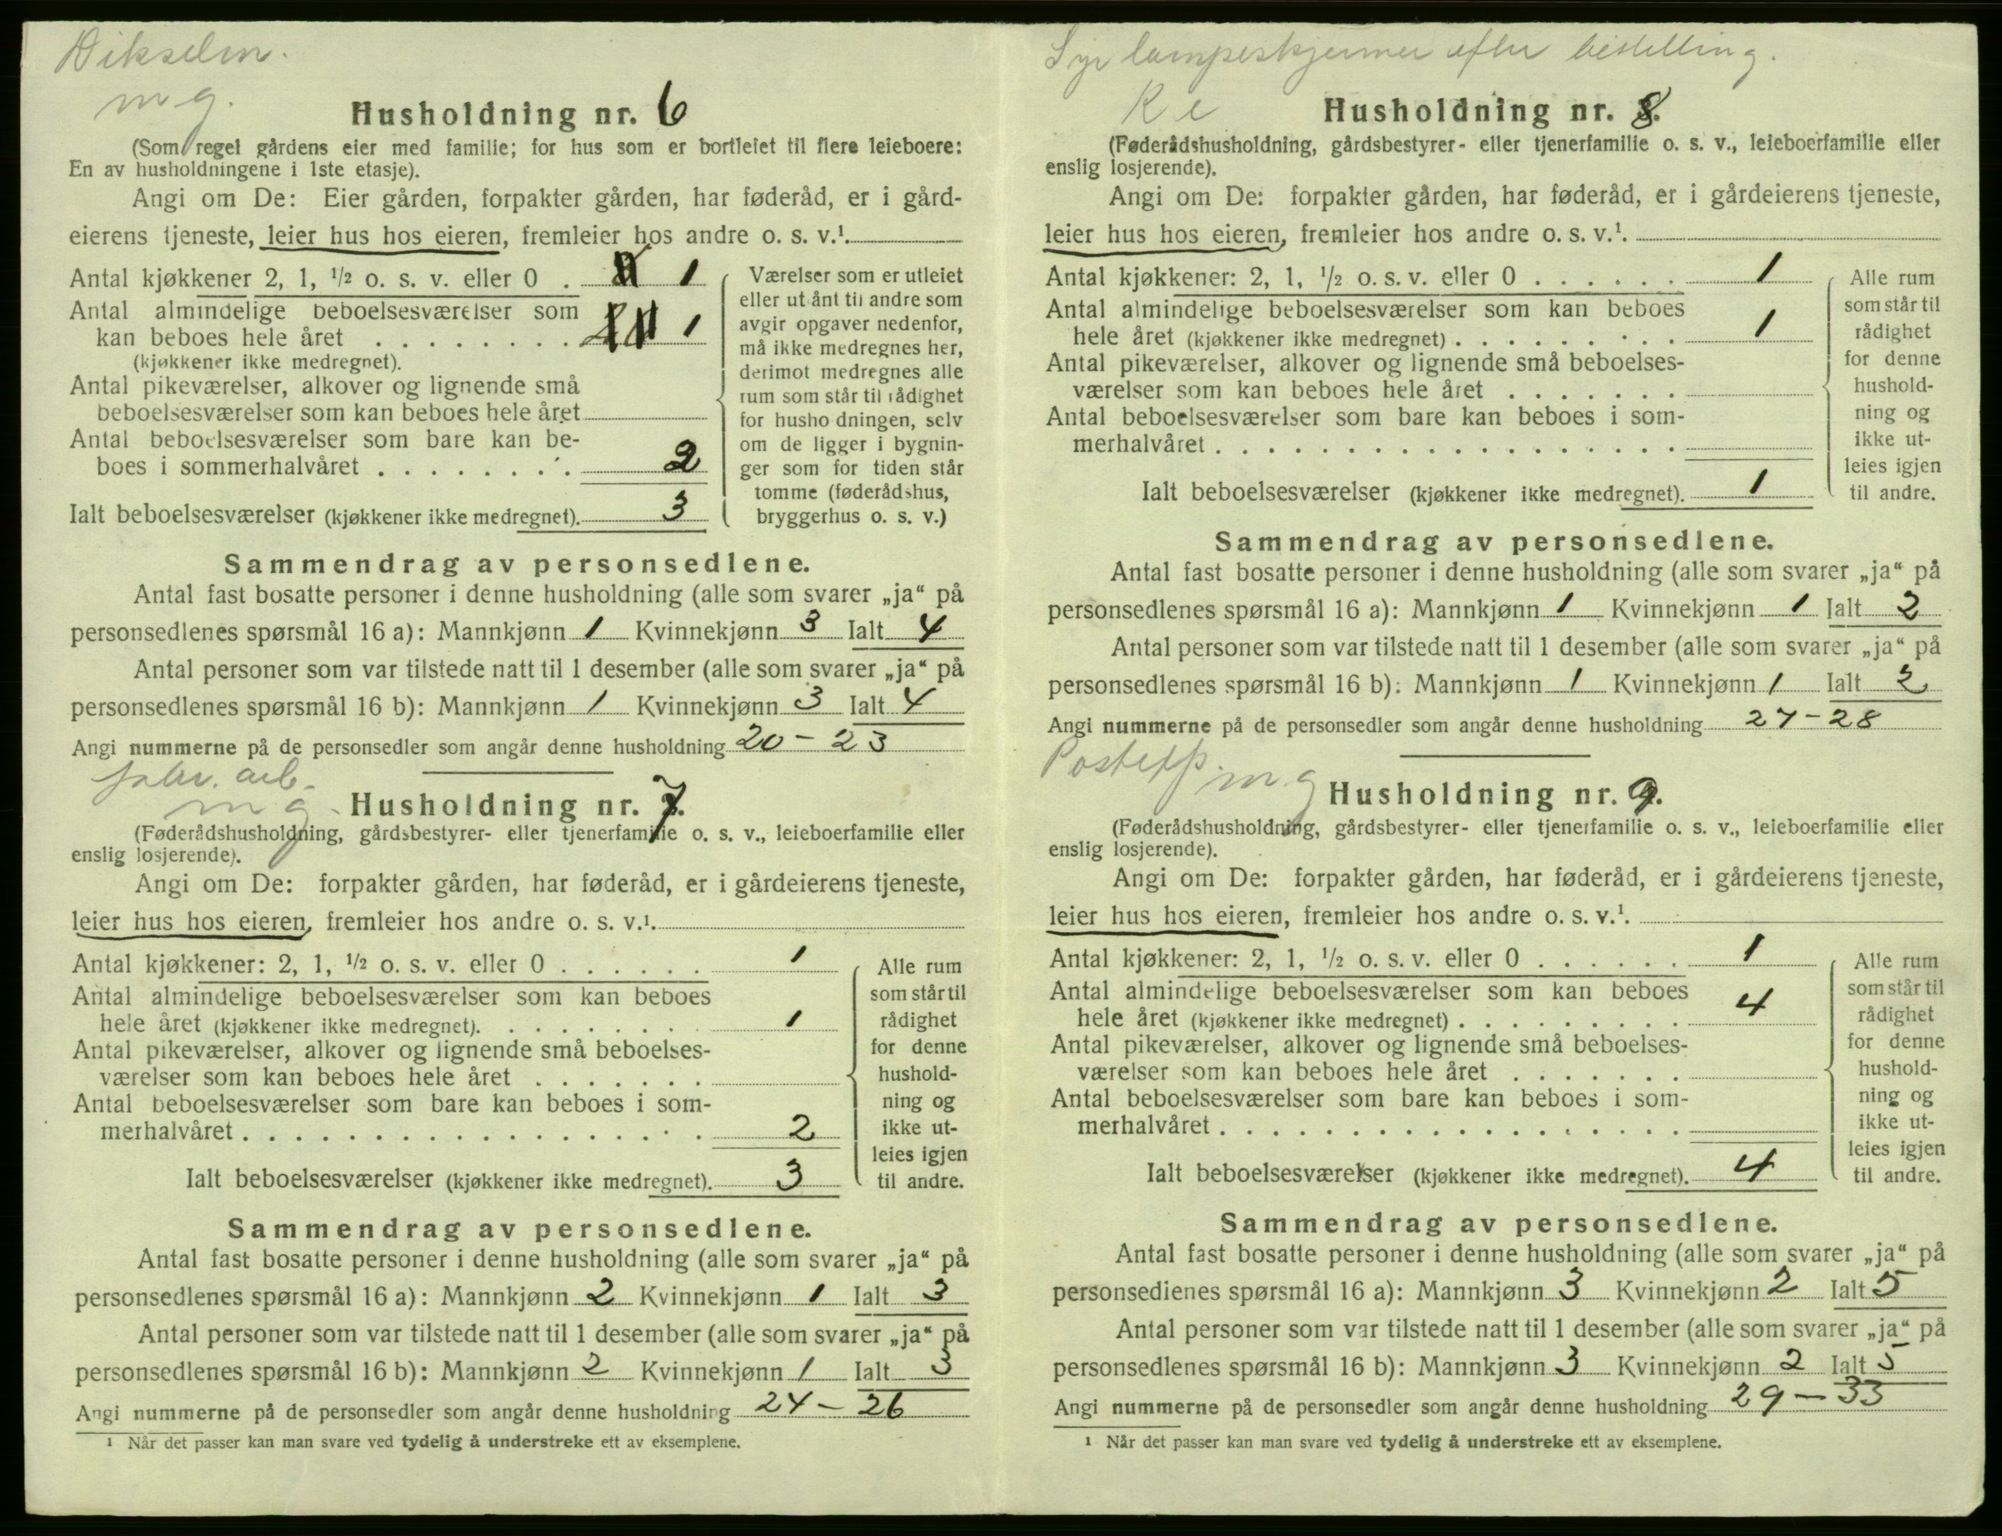 m g.
Husholdning nr. 6
(Som regel gårdens eier med familie; for hus som er bortleiet til flere leieboere:
En av husholdningene i 1ste etasje).
Angi om De: Eier gården, forpakter gården, har føderåd, er i gård-
eierens tjeneste, leier hus hos eieren, fremleier hos andre o. s. v.¹.
Antal kjøkkener 2, 1, ½ o. s. v. eller 0 . 1
Antal almindelige beboelsesværelser som
kan beboes hele året . . . . . . . . 1
(kjøkkener ikke medregnet).
Antal pikeværelser, alkover og lignende små
beboelsesværelser som kan beboes hele året
Antal beboelsesværelser som bare kan be-
boes i sommerhalvåret . . . . . . . . 2
Ialt beboelsesværelser (kjøkkener ikke medregnet). 3
Værelser som er utleiet
eller ut ånt til andre som
avgir opgaver nedenfor,
må ikke medregnes her,
derimot medregnes alle
rum som står til rådighet
for husho dningen, selv
om de ligger i bygnin-
ger som for tiden står
tomme (føderådshus,
bryggerhus o. s. v.)
Sammendrag av personsedlene.
Antal fast bosatte personer i denne husholdning (alle som svarer „ja“ på
personsedlenes spørsmål 16 a): Mannkjønn 1 Kvinnekjønn 3 Ialt 4
Antal personer som var tilstede natt til 1 desember (alle som svarer „ja“ på
personsedlenes spørsmål 16 b): Mannkjønn 1 Kvinnekjønn 3 Ialt 4
Angi nummerne på de personsedler som angår denne husholdning 20 – 23
fabr. arb.
m g
Husholdning nr. 7.
(Føderådshusholdning, gårdsbestyrer- eller tjenerfamilie o. s. v., leieboerfamilie eller
enslig losjerende).
Angi om De: forpakter gården, har føderåd, er i gårdeierens tjeneste,
leier hus hos eieren, fremleier hos andre o. s. v.¹.
Antal kjøkkener: 2, 1, ½ o. s. v. eller 0 . . . . . . 1
Antal almindelige beboelsesværelser som kan beboes
hele året (kjøkkener ikke medregnet). . . . . . . . . 1
Antal pikeværelser, alkover og lignende små beboelses-
værelser som kan beboes hele året . . . . . . .
Antal beboelsesværelser som bare kan beboes i som-
merhalvåret . . . . . . . . . . . . . . . . . 2
Ialt beboelsesværelser (kjøkkener ikke medregnet). 3
Alle rum
som står til
rådighet
for denne
hushold-
ning og
ikke ut-
leies igjen
til andre.
Sammendrag av personsedlene.
Antal fast bosatte personer i denne husholdning (alle som svarer „ja“ på
personsedlenes spørsmål 16 a): Mannkjønn 2 Kvinnekjønn 1 Ialt 3
Antal personer som var tilstede natt til 1 desember (alle som svarer „ja“ på
personsedlenes spørsmål 16 b): Mannkjønn 2 Kvinnekjønn 1 Ialt 3
Angi nummerne på de personsedler som angår denne husholdning 24 – 26
¹ Når det passer kan man svare ved tydelig å understreke ett av eksemplene.
Syr lampeskjermer efter bestilling.
Husholdning nr. 8.
(Føderådshusholdning, gårdsbestyrer- eller tjenerfamilie o. s. v., leieboerfamilie eller
enslig losjerende).
Angi om De: forpakter gården, har føderåd, er i gårdeierens tjeneste,
leier hus hos eieren, fremleier hos andre o. s. v.¹.
Antal kjøkkener: 2, 1, ½ o. s. v. eller 0 . . . . . . 1
Antal almindelige beboelsesværelser som kan beboes
hele året (kjøkkener ikke medregnet) . . . . . . . . . 1
Antal pikeværelser, alkover og lignende små beboelses-
værelser som kan beboes hele året . . . . . . .
Antal beboelsesværelser som bare kan beboes i som-
merhalvåret . . . . . . . . . . . . . . . . .
Ialt beboelsesværelser (kjøkkener ikke medregnet). 1
Alle rum
som står til
rådighet
for denne
hushold-
ning og
ikke ut-
leies igjen
til andre.
Sammendrag av personsedlene.
Antal fast bosatte personer i denne husholdning (alle som svarer „ja“ på
personsedlenes spørsmål 16 a): Mannkjønn 1 Kvinnekjønn 1 Ialt 2
Antal personer som var tilstede natt til 1 desember (alle som svarer „ja“ på
personsedlenes spørsmål 16 b): Mannkjønn 1 Kvinnekjønn 1 Ialt 2
Angi nummerne på de personsedler som angår denne husholdning 27 – 28
m g
Husholdning nr. 9.
(Føderådshusholdning, gårdsbestyrer- eller tjenerfamilie o. s. v., leieboerfamilie eller
enslig losjerende).
Angi om De: forpakter gården, har føderåd, er i gårdeierens tjeneste,
leier hus hos eieren, fremleier hos andre o. s. v.¹.
Antal kjøkkener: 2, 1, ½ o. s. v. eller 0 . . . . . . 1
Antal almindelige beboelsesværelser som kan beboes
hele året (kjøkkener ikke medregnet) . . . . . . . . . 4
Antal pikeværelser, alkover og lignende små beboelses-
værelser som kan beboes hele året . . . . . . .
Antal beboelsesværelser som bare kan beboes i som-
merhalvåret . . . . . . . . . . . . . . . . .
Ialt beboelsesværelser (kjøkkener ikke medregnet). 4
Alle rum
som står til
rådighet
for denne
hushold-
ning og
ikke ut-
leies igjen
til andre.
Sammendrag av personsedlene.
Antal fast bosatte personer i denne husholdning (alle som svarer „ja“ på
personsedlenes spørsmål 16 a): Mannkjønn 3 Kvinnekjønn 2 Ialt 5
Antal personer som var tilstede natt til 1 desember (alle som svarer „ja“ på
personsedlenes spørsmål 16 b): Mannkjønn 3 Kvinnekjønn 2 Ialt 5
Angi nummerne på de personsedler som angår denne husholdning 29 – 33
¹ Når det passer kan man svare ved tydelig å understreke ett av eksemplene.